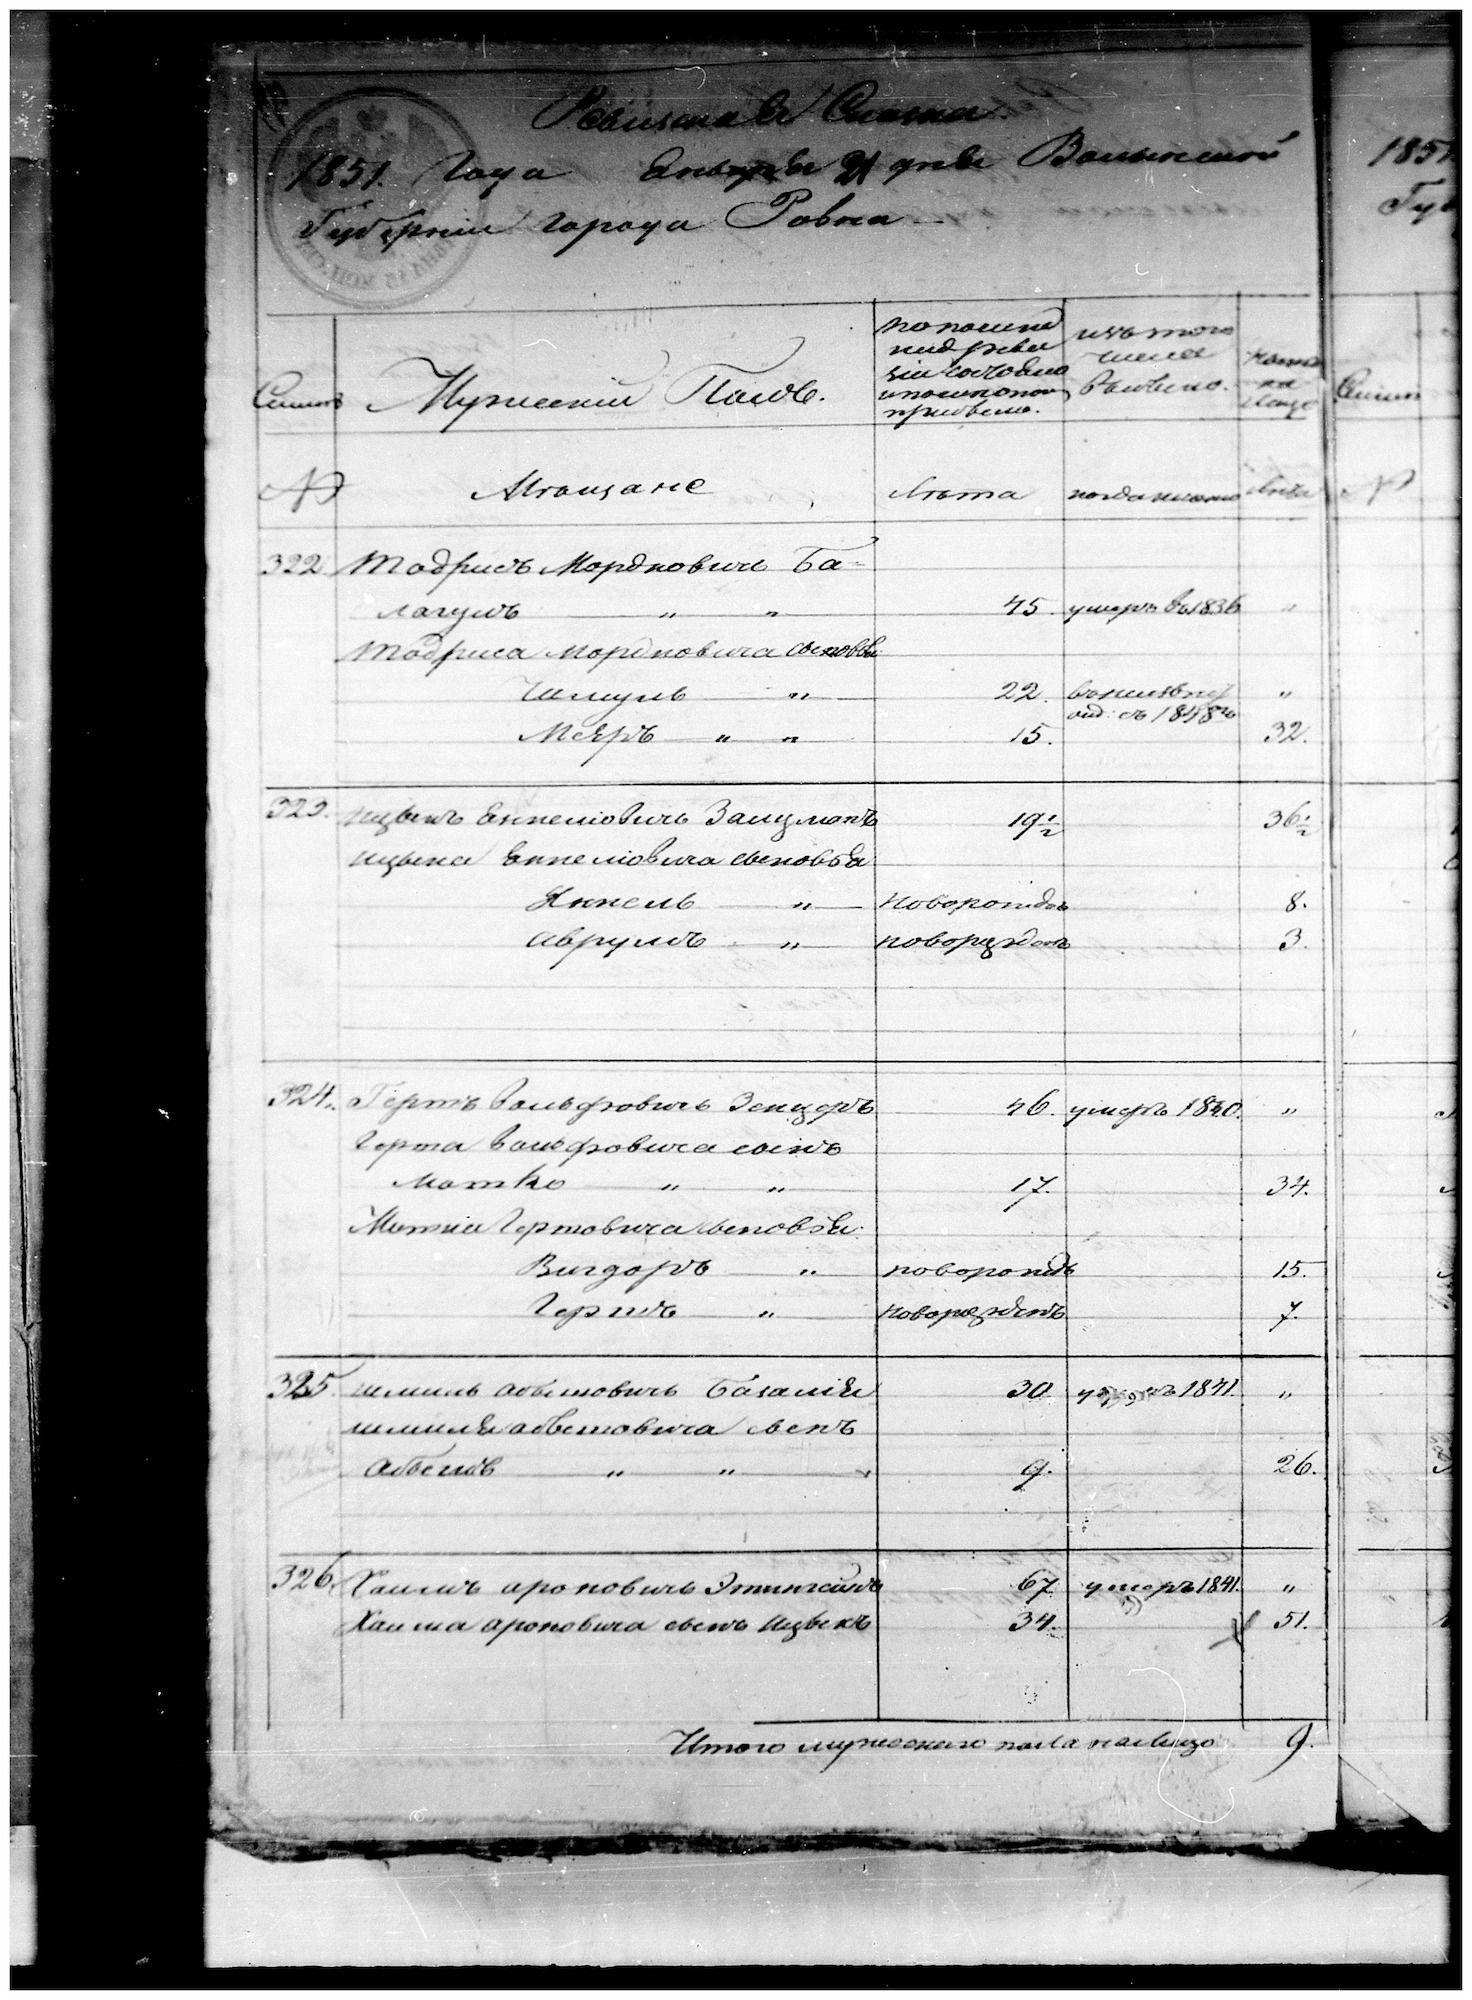 Ревизская Сказка
1851. Года Генваря 21 дня Волынской
Губернии города Ровна
Семьи
Мужеский Полъ.
по последней
ревизии состояло
и после того
прибыло.
изъ того
числа
выбыло.
ныне
на
лицо
№ Мещане Лета когда именно лета
322 Тодрисъ Мордковичъ Ба-
лагулъ " " 45. умеръ в 1836 "
Тодриса Мордковича сыновья
Шмуль " 22. "
съ 1848 го
Мееръ " " 15. 32.
323. Ицыкъ Янкелiовичъ Залцманъ 19½ 36½
Ицыка Янкелiовича сыновья
Янкель " новорожден 8.
Аврумъ " новорожденъ 3.
324. Гершъ Вольфовичъ Зенцеръ 46. умеръ 1840. "
Герша Вольфовича сынъ
Мотко " " 17. 34.
Мотки Гершовича сыновья
Вигдоръ " новорожд 15.
Герш " новорожденъ 7.
325. Шмиль Абрамовичъ Базалiя 30 умеръ 1841. "
Шмиля Абрамовича сынъ
" " 9. 26.
326. Хаимъ Ароновичъ 67. умеръ 1841. "
Хаима Ароновича сынъ Ицыкъ 34. 51.
Итого мужескаго пола налицо 9.
1851
Семьи
№